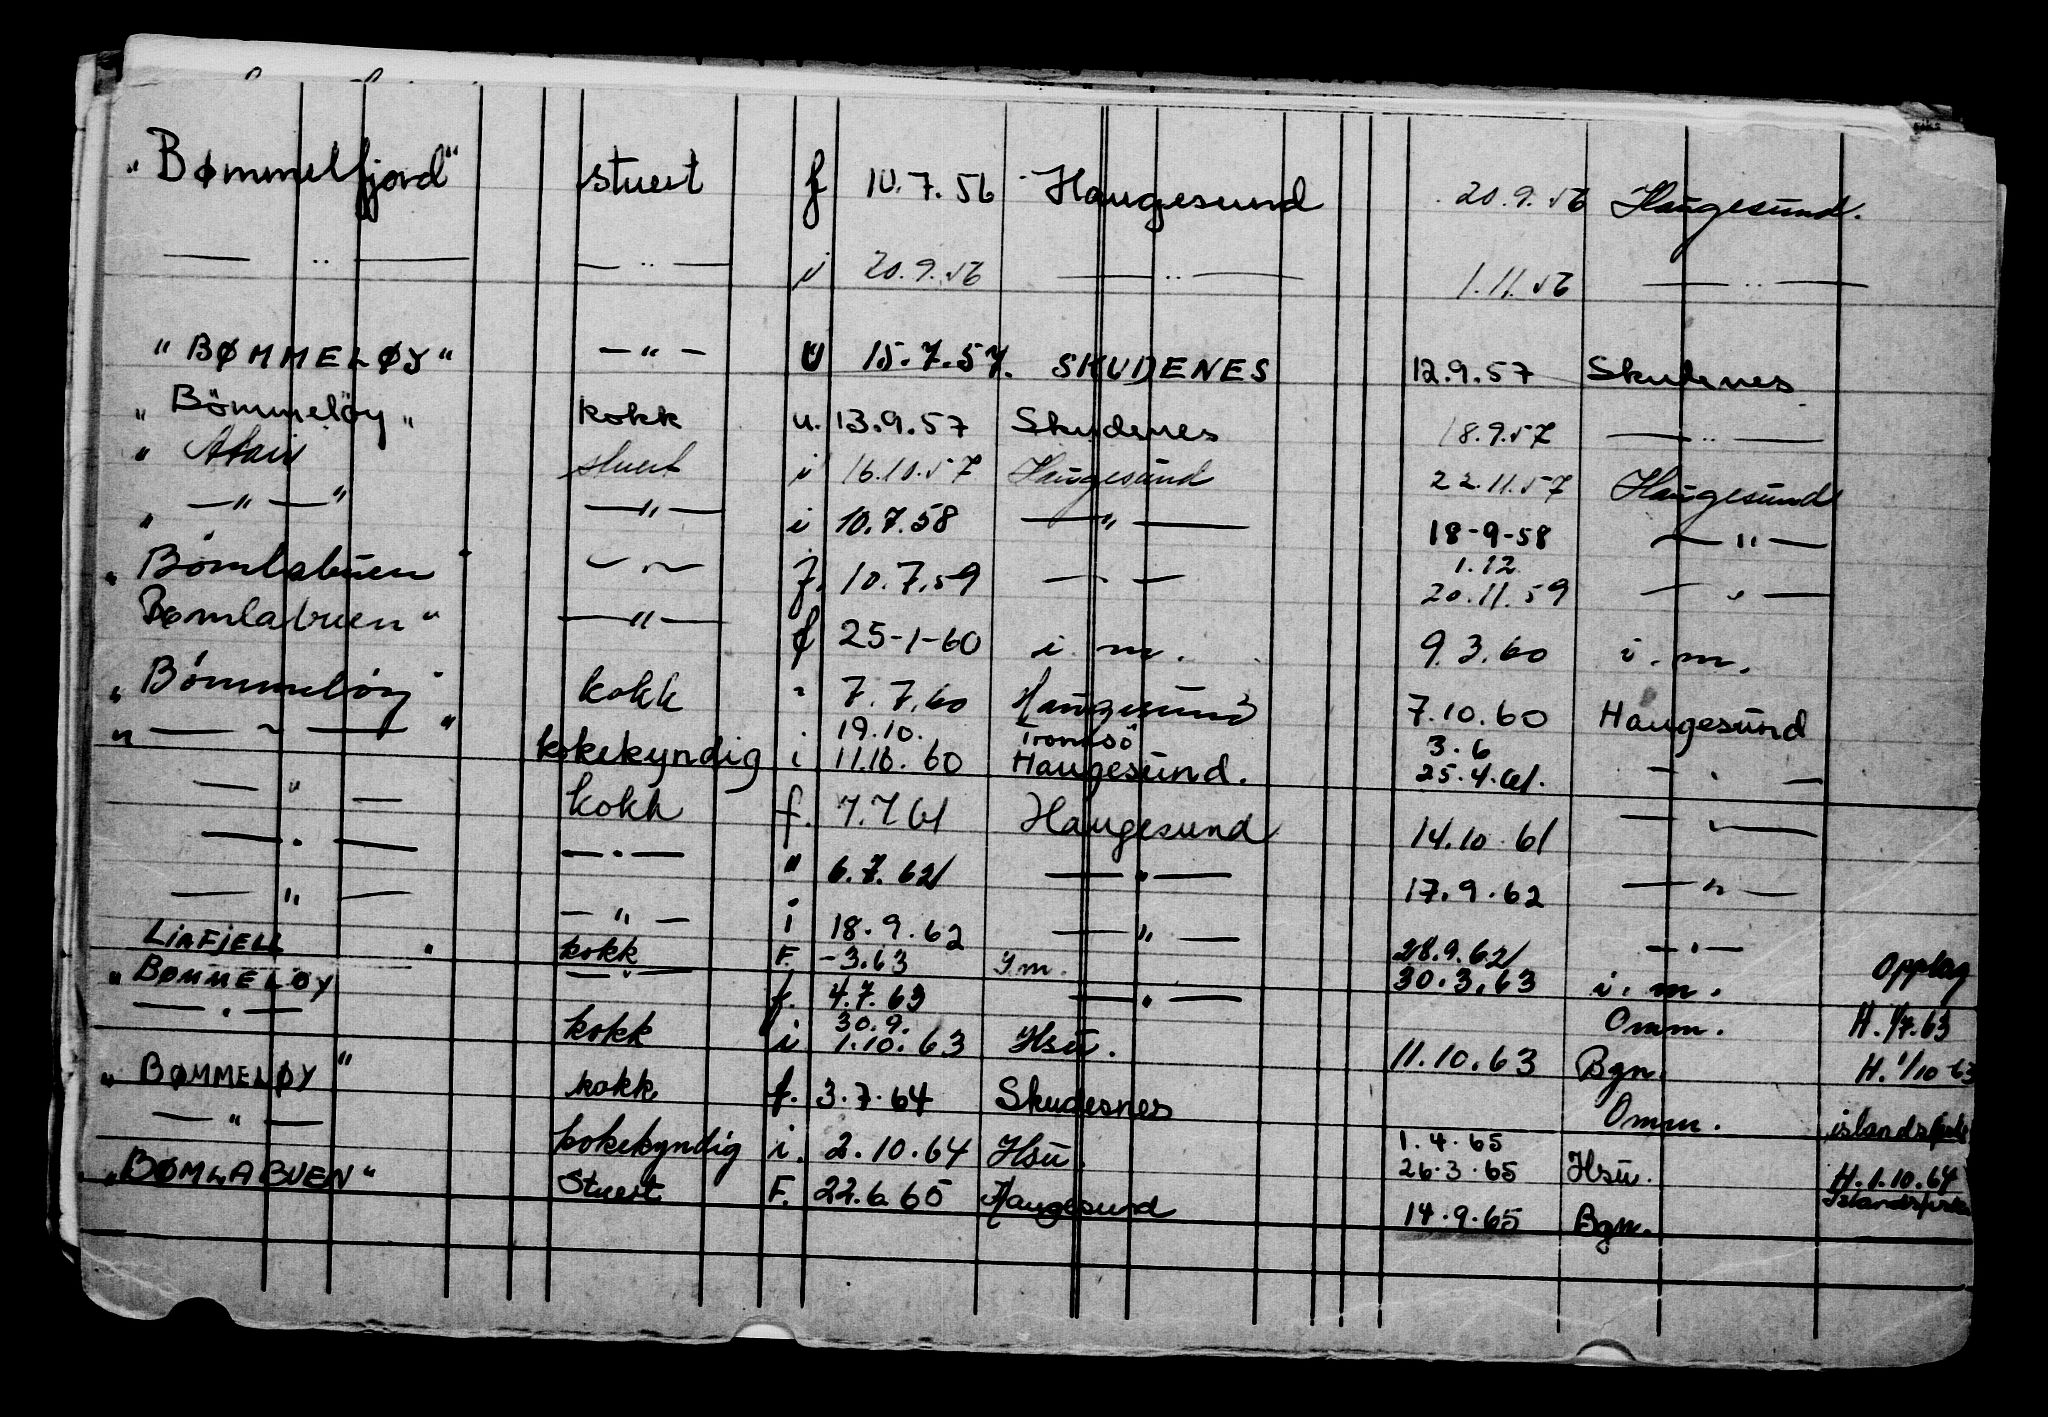 „Bømmelfjord“ stuert f 10.7.56 Haugesund 20.9.56 Haugesund.
— ·· — — ·· — i 20.9.56 — ·· — 1.11.56 — ·· —
"BØMMELØY" — " — 15.7.57. SKUDENES 12.9.57 Skudenes
„Bömmelöy„ kokk u. 13.9.57 Skudenes 18.9.57 — ·· —
" Atair stuert i 16.10.57 Haugesund 22.11.57 Haugesund
„ — " — " — " — i 10.7.58 — " — 18-9-58 — " —
1.12
„Bömlabuen" — " — f. 10.7.59 — · — 20.11.59 — " —
Bomlabuen" — " — f 25-1-60 i. m. 9.3.60 i. m.
„Bömmelöy" kokk " 7.7.60 Haugesund 7.10.60 Haugesund
19.10. Tromsö 3.6
" — " — " kokekyndig i 11.10.60 Haugesund. 25.4.61. — · —
— " — kokk f. 7.7.61 Haugesund 14.10.61 — " —
— · — — · — " 6.7.62 — " — 17.9.62 — " —
— " — — " — i 18.9.62 — " — 28.9.62 — · —
LIAFJELL " kokk F. -3.63 Ym. 30.3.63 i. m. Opplag
„BØMMELØY — " — f. 4.7.63 — · — Omm. H. 1/7.63
30.9.
— · — kokk i 1.10.63 Hsu. 11.10.63 Bgn. H. 1/10-63
„BØMMELØY" kokk f. 3.7.64 Skudesnes Omm.
1.4.65
— " — kokekyndig i. 2.10.64 Hsu. 26.3.65 Hsu. H. 1.10.64
„BØMLABUEN" Stuert F. 22.6.65 Haugesund 14.9.65 Bgn.